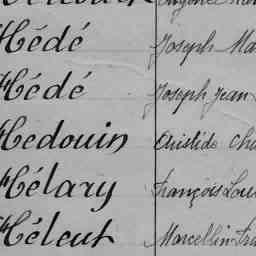 Hédé Joseph Ma
Hédé Joseph Jean
Hedouin Aristide Cha
Hélary François Lou
Héleut Marcellin Fra